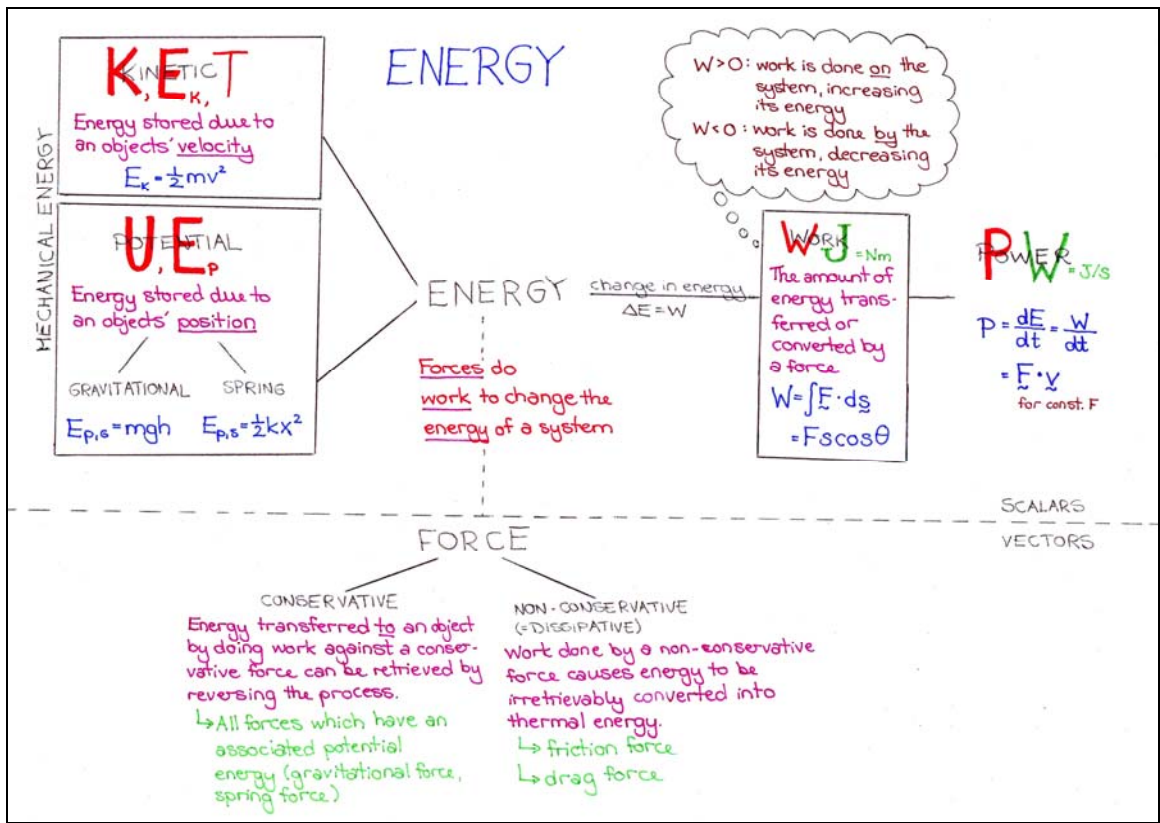 ENERGY
MECHANICAL ENERGY
KINETIC
K, E_K, T
Energy stored due to
an objects' velocity
E_K = ½mv²
POTENTIAL
U, E_P
Energy stored due to
an objects' position
GRAVITATIONAL
E_P,G = mgh
SPRING
E_P,S = ½kx²
ENERGY
change in energy
ΔE = W
W>0: work is done on the
system, increasing
its energy
W<0: work is done by the
system, decreasing
its energy
WORK
W J = Nm
The amount of
energy trans-
ferred or
converted by
a force
W = ∫F · ds
= Fscosθ
POWER
P W = J/s
P = dE/dt = W/dt
= F · v
for const. F
Forces do
work to change the
energy of a system
SCALARS
VECTORS
FORCE
CONSERVATIVE
Energy transferred to an object
by doing work against a conser-
vative force can be retrieved by
reversing the process.
↳ All forces which have an
associated potential
energy (gravitational force,
spring force)
NON-CONSERVATIVE
(=DISSIPATIVE)
Work done by a non-conservative
force causes energy to be
irretrievably converted into
thermal energy.
↳ friction force
↳ drag force